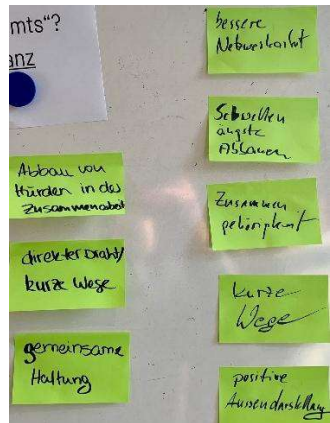 mts“?
anz
Abbau von
Hürden in der
Zusammenarbeit
direkter Draht/
kurze Wege
gemeinsame
Haltung
bessere
Netzwerkarbeit
Schwellen
ängste
Abbauen
Zusammen
gehörigkeit
kurze
Wege
positive
Aussendarstellung